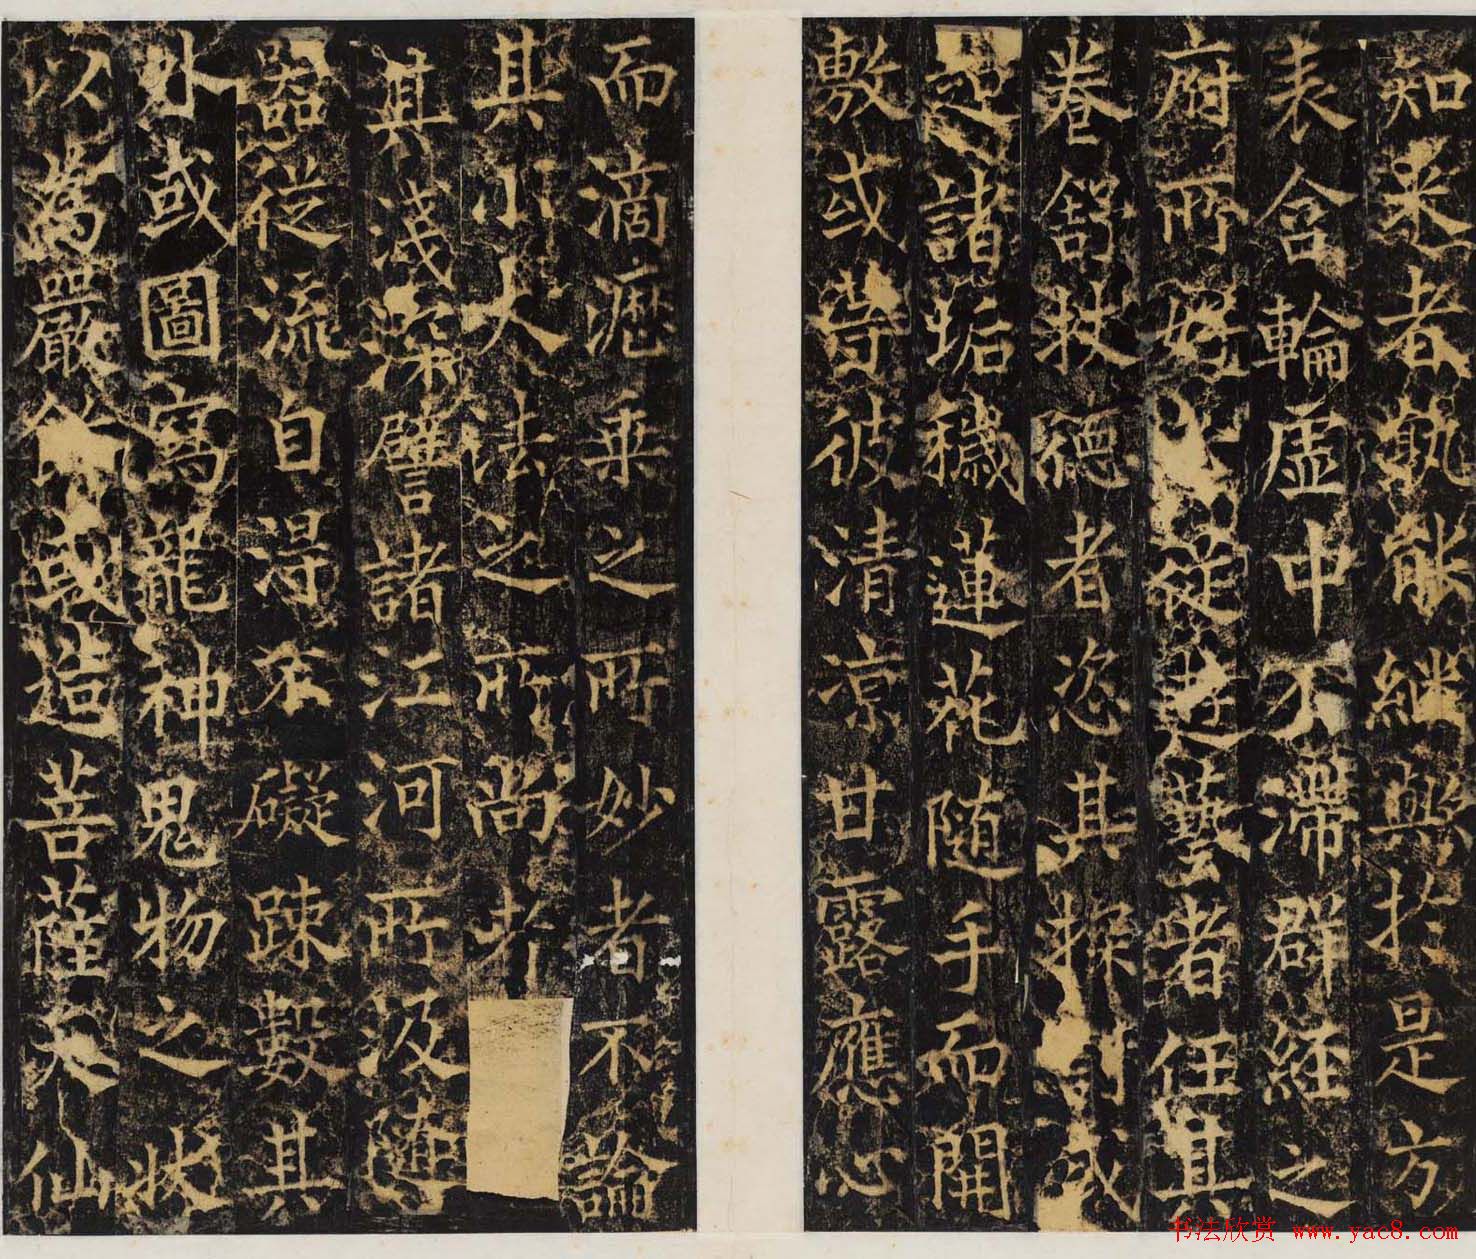 知来者孰能継與於是方
表含輪虛中不滯群經之
府所好從遊藝者任其
卷舒扶德者恣其探討或
迎諸垢穢蓮花随手而開
敷或等彼清凉甘露應心
而滴瀝乗之所妙者不論
其小大法之所尚者
其浅深譬諸江河所汲随
器從流自淂不礙踈數其
外或圖寫龍神鬼物之状
以為嚴飾或造菩薩天仙
书法欣赏 www.yac8.com